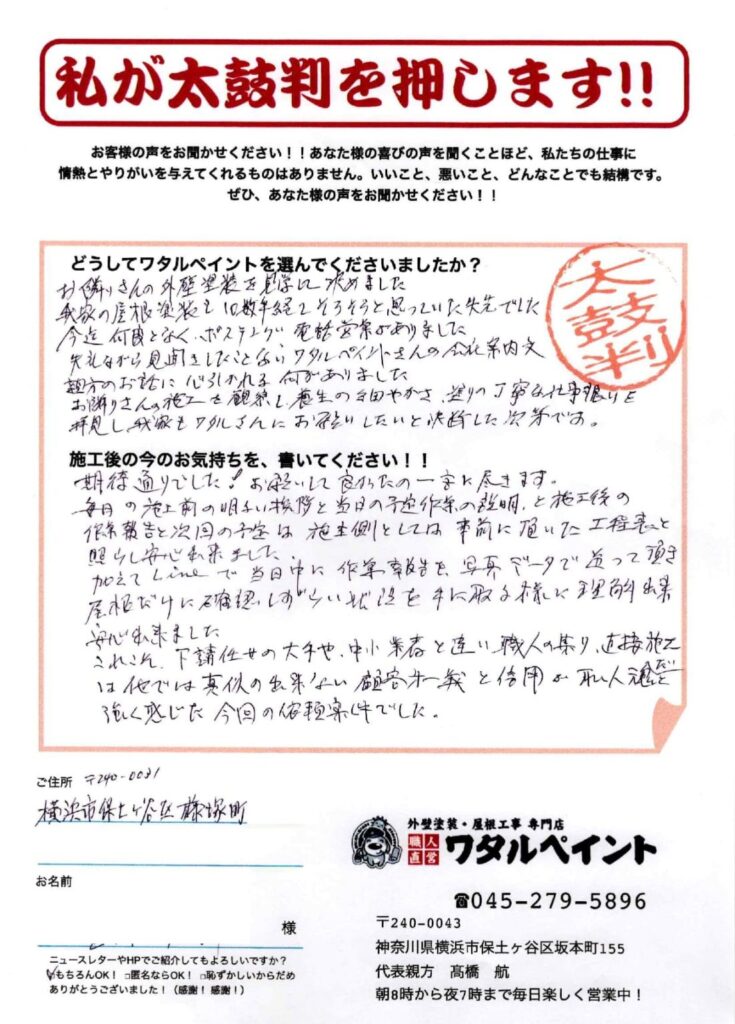 私が太鼓判を押します!!
お客様の声をお聞かせください！！あなた様の喜びの声を聞くことほど、私たちの仕事に
情熱とやりがいを与えてくれるものはありません。いいこと、悪いこと、どんなことでも結構です。
ぜひ、あなた様の声をお聞かせください！！
どうしてワタルペイントを選んでくださいましたか？
お隣りさんの外壁塗装を見学して決めました
我家の屋根塗装も10数年経てそろそろと思っていた矢先でした
今迄何度となく、ポスティング、電話営業がありました
失礼ながら見聞きしたことないワタルペイントさんの会社案内文
親方のお話に心引かれる何かがありました
お隣りさんの施工を観察し養生の細やかさ、塗りの丁寧な仕事振りを
拝見し、我家もワタルさんにお願いしたいと決断した次第です。
太鼓判
施工後の今のお気持ちを、書いてください！！
期待通りでした！お願いして良かったの一言に尽きます。
毎日の施工前の明るい挨拶と当日の予定作業の説明、と施工後の
作業報告と次回の予定は施主側としては事前に頂いた工程表と
照らし安心出来ました
加えてLineで当日中に作業報告を、写真データで送って頂き
屋根だけに確認しずらい状況を手に取る様に理解出来
安心出来ました
これこそ、下請任せの大手や、中小業者と違い、職人の集り、直接施工
は他では真似の出来ない顧客第一義と信用が職人魂だと
強く感じた今回の依頼案件でした。
ご住所 〒240-0031
横浜市保土ヶ谷区藤塚町
お名前
様
ニュースレターやHPでご紹介してもよろしいですか？
☑もちろんOK！ □匿名ならOK！ □恥ずかしいからだめ
ありがとうございました！（感謝！感謝！）
外壁塗装・屋根工事 専門店
職人直営 ワタルペイント
☎045-279-5896
〒240-0043
神奈川県横浜市保土ヶ谷区坂本町155
代表親方 髙橋 航
朝8時から夜7時まで毎日楽しく営業中！